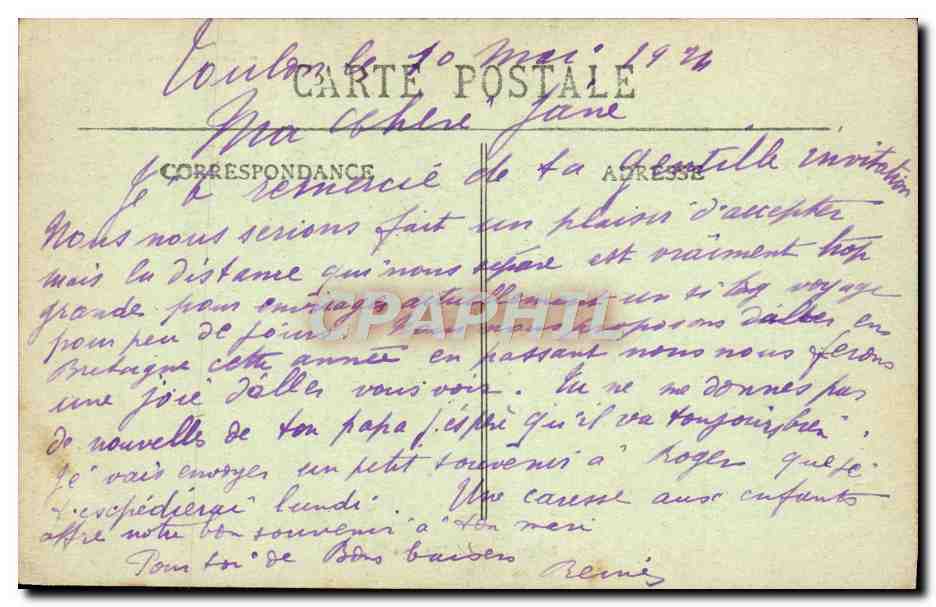 Toulon le 10 Mai 1924
CARTE POSTALE
Ma Chère Jane
CORRESPONDANCE
ADRESSE
Je te remercie de ta gentille invitation
Nous nous serions fait un plaisir d'accepter
mais la distance qui nous sépare est vraiment trop
grande pour envisager actuellement un si long voyage
pour peu de jours. Nous nous proposons d'aller en
Bretagne cette année en passant nous nous ferons
une joie d'aller vous voir. Tu ne me donnes pas
de nouvelles de ton papa j'espère qu'il va toujours bien.
Je vais envoyer un petit souvenir à Roger que je
t'expédierai lundi. Une caresse aux enfants
offre notre bon souvenir à ton mari
Pour toi de Bons baisers
CPAPHIL